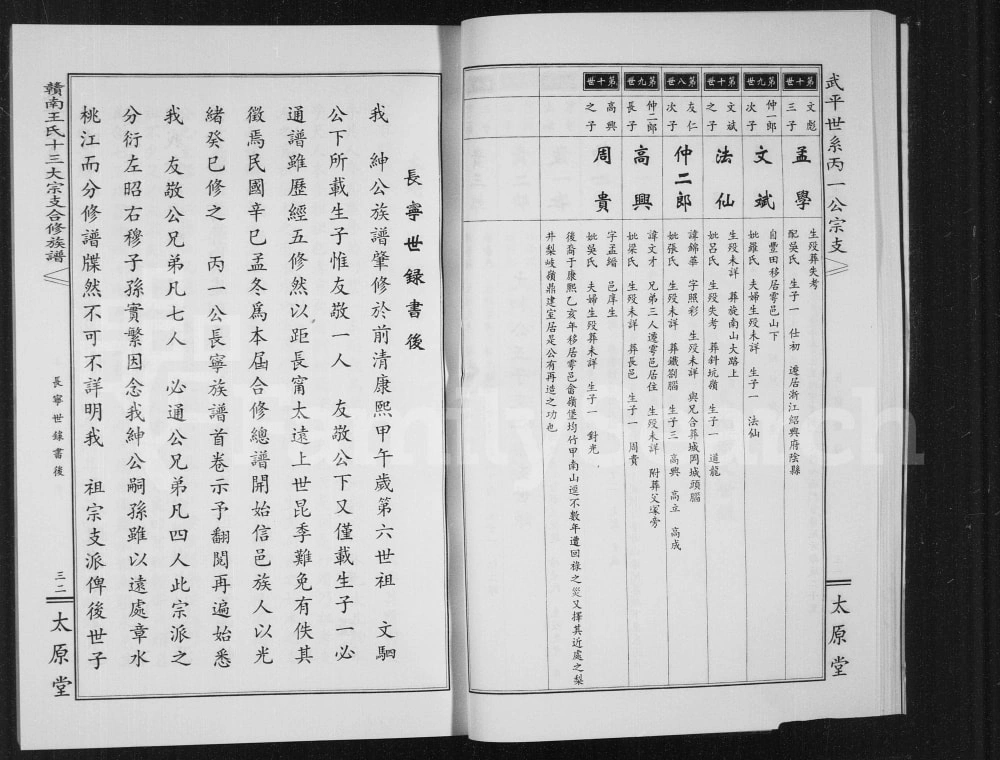 武平世系丙一公宗支
太原堂
第十世
文彪
三子
孟學
生歿葬失考
配吳氏 生子一 仕初 遷居浙江紹興府陰縣
第九世
仲一郎
次子
文斌
自豐田移居雩邑山下
妣羅氏 夫婦生歿葬未詳 生子一 法仙
第十世
文斌
之子
法仙
生歿未詳 葬旋南山大路上
妣呂氏 生歿失考 葬斜坑嶺 生子一 道龍
第八世
友仁
次子
仲二郎
諱錦華 字照彩 生歿未詳 與兄合葬城岡城頭腦
妣張氏 生歿未詳 葬鐵劄腦 生子三 高興 高立 高成
第九世
仲二郎
長子
高興
諱文才 兄弟三人遷雩邑居住 生歿未詳 附葬父塚旁
妣梁氏 生歿未詳 葬長邑 生子一 周貴
第十世
高興
之子
周貴
字孟縉 邑庠生
妣吳氏 夫婦生歿葬未詳 生子一 對光
後裔于康熙乙亥年移居雩邑畲嶺堡均竹甲南山逕不數年遭回祿之災又擇其近處之梨
井梨岐嶺鼎建室居是公有再造之功也
長寧世錄書後
我 紳公族譜肇修於前清康熙甲午歲第六世祖 文駟
公下所載生子惟友敬一人 友敬公下又僅載生子一必
通譜雖歷經五修然以距長甯太遠上世昆季難免有佚其
徵焉民國辛巳孟冬爲本屆合修總譜開始信邑族人以光
緒癸巳修之 丙一公長寧族譜首卷示予翻閱再遍始悉
我 友敬公兄弟凡七人 必通公兄弟凡四人此宗派之
分衍左昭右穆子孫實繁因念我紳公嗣孫雖以遠處章水
桃江而分修譜牒然不可不詳明我 祖宗支派俾後世子
贛南王氏十三大宗支合修族譜
長寧世錄書後
三二
太原堂